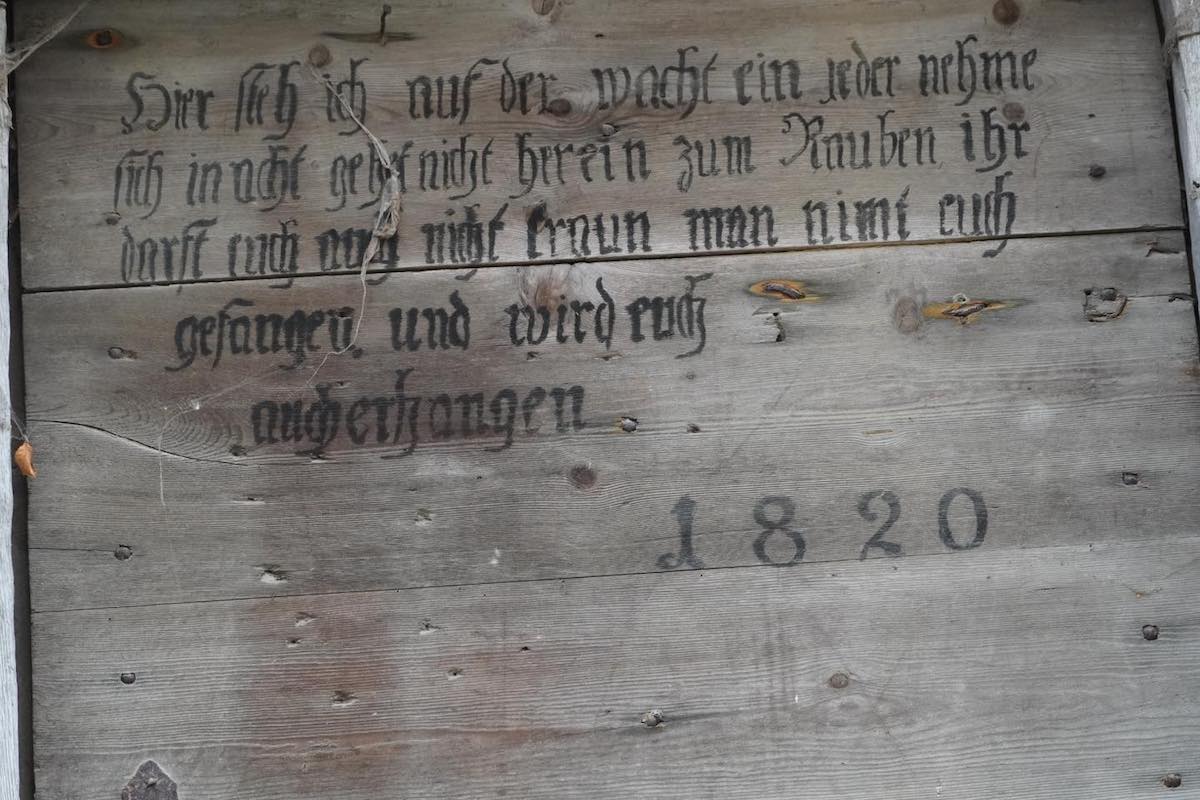 Hier steh ich auf der wacht ein jeder nehme
sich in acht gehet nicht herein zum Rauben ihr
darft euch auch nicht traun man nimt euch
gefangen, und wird euch
auch erhangen
1820